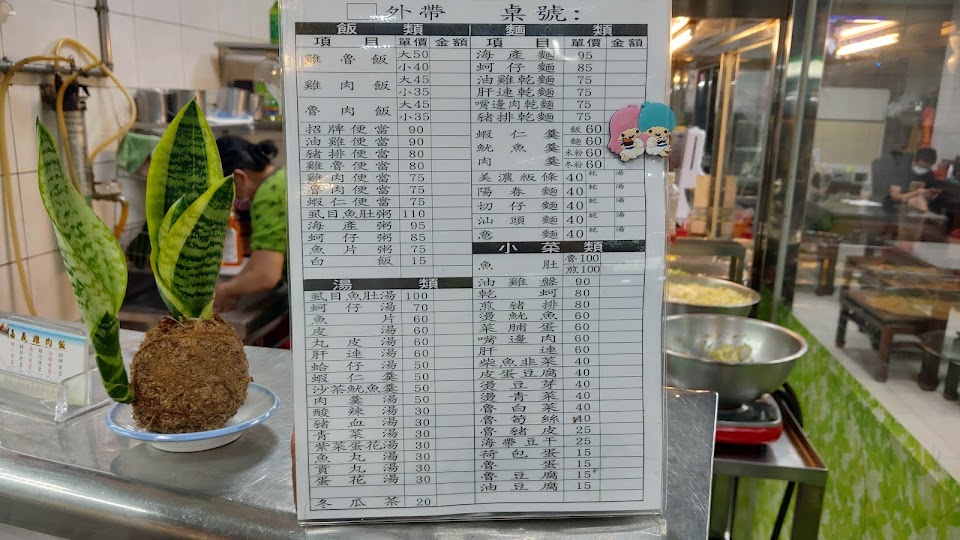 □外帶 桌號:
飯類
項目 單價 金額
雞魯飯 大50
小40
雞肉飯 大45
小35
魯肉飯 大45
小35
招牌便當 90
油雞便當 90
豬排便當 80
雞魯便當 80
雞肉便當 75
魯肉便當 75
蝦仁便當 75
虱目魚肚粥 110
海產粥 95
蚵仔粥 85
魚片粥 75
白飯 15
湯類
虱目魚肚湯 100
蚵仔湯 70
魚片湯 60
皮湯 60
丸皮湯 60
肝連湯 50
蛤仔湯 50
蝦仁羹 50
沙茶魷魚羹 50
肉羹湯 50
酸辣湯 30
豬血湯 30
青菜湯 30
紫菜蛋花湯 30
魚丸湯 30
貢丸湯 30
蛋花湯 30
冬瓜茶 20
麵類
項目 單價 金額
海產麵 95
蚵仔麵 85
油雞乾麵 75
肝連乾麵 75
嘴邊肉乾麵 75
豬排乾麵 75
蝦仁羹 飯60
魷魚羹 麵60
肉羹 米粉60
冬粉60
美濃粄條 40 乾 湯
陽春麵 40 乾 湯
切仔麵 40 乾 湯
汕頭麵 40 乾 湯
意麵 40 乾 湯
小菜類
魚肚 魯100
煎100
油雞盤 90
乾蚵 80
煎豬排 80
燙魷魚 60
菜脯蛋 60
嘴邊肉 60
肝連 60
柴魚韭菜 40
皮蛋豆腐 40
燙豆芽 40
燙青菜 40
魯白菜 40
魯筍絲 40
魯豬皮 25
海帶豆干 25
荷包蛋 15
魯蛋 15
魯豆腐 15
油豆腐 15
雞肉飯